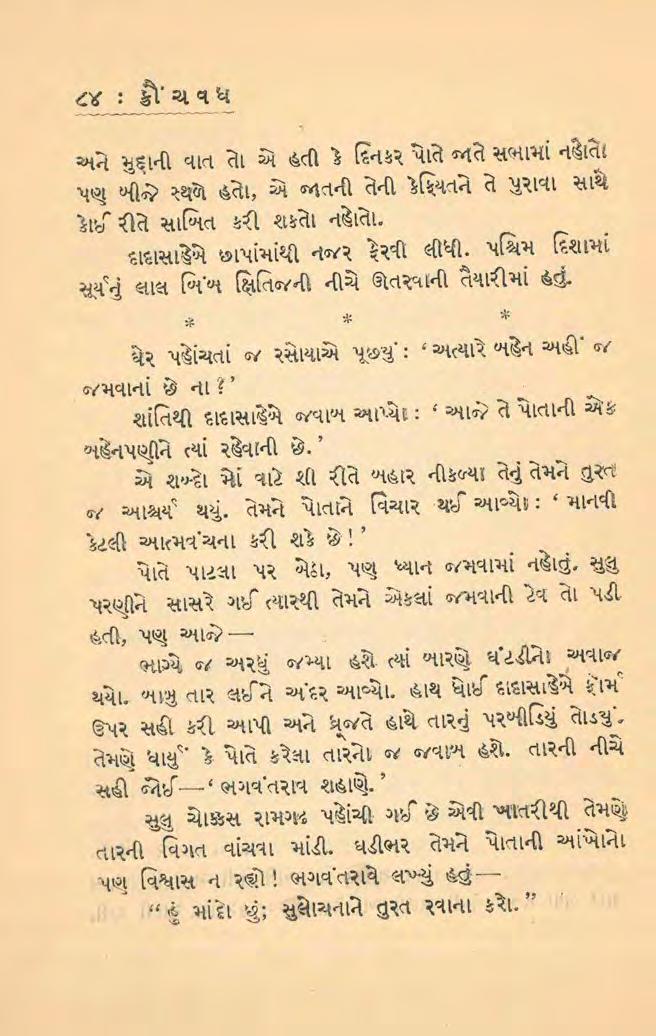 ૮૪ : ક્રૌંચવધ
અને મુદ્દાની વાત તો એ હતી કે દિનકર પોતે જાતે સભામાં નહોતો
પણ બીજે સ્થળે હતો, એ જાતની તેની કેફિયતને તે પુરાવા સાથે
કોઈ રીતે સાબિત કરી શકતો નહોતો.
દાદાસાહેબે છાપાંમાંથી નજર ફેરવી લીધી. પશ્ચિમ દિશામાં
સૂર્યનું લાલ બિંબ ક્ષિતિજની નીચે ઊતરવાની તૈયારીમાં હતું.
* * *
ઘેર પહોંચતાં જ રસોયાએ પૂછ્યું : ‘ અત્યારે બહેન અહીં જ
જમવાનાં છે ના ?’
શાંતિથી દાદાસાહેબે જવાબ આપ્યો : ‘ આજે તે પોતાની એક
બહેનપણીને ત્યાં રહેવાની છે. ’
એ શબ્દો મોં વાટે શી રીતે બહાર નીકળ્યા તેનું તેમને તુરત
જ આશ્ચર્ય થયું. તેમને પોતાને વિચાર થઈ આવ્યો : ‘ માનવી
કેટલી આત્મવંચના કરી શકે છે ! ’
પોતે પાટલા પર બેઠા, પણ ધ્યાન જમવામાં નહોતું. સુલુ
પરણીને સાસરે ગઈ ત્યારથી તેમને એકલાં જમવાની ટેવ તો પડી
હતી, પણ આજે —
ભાગ્યે જ અરધું જમ્યા હશે ત્યાં બારણે ઘંટડીનો અવાજ
થયો. બાબુ તાર લઈને અંદર આવ્યો. હાથ ધોઈ દાદાસાહેબે ફૉર્મ
ઉપર સહી કરી આપી અને ધ્રૂજતે હાથે તારનું પરબીડિયું તોડ્યું.
તેમણે ધાર્યું કે પોતે કરેલા તારનો જ જવાબ હશે. તારની નીચે
સહી જોઈ—‘ ભગવંતરાવ શહાણે. ’
સુલુ ચોક્કસ રામગઢ પહોંચી ગઈ છે એવી ખાતરીથી તેમણે
તારની વિગત વાંચવા માંડી. ઘડીભર તેમને પોતાની આંખોનો
પણ વિશ્વાસ ન રહ્યો ! ભગવંતરાવે લખ્યું હતું—
“ હું માંદો છું; સુલોચનાને તુરત રવાના કરો. ”